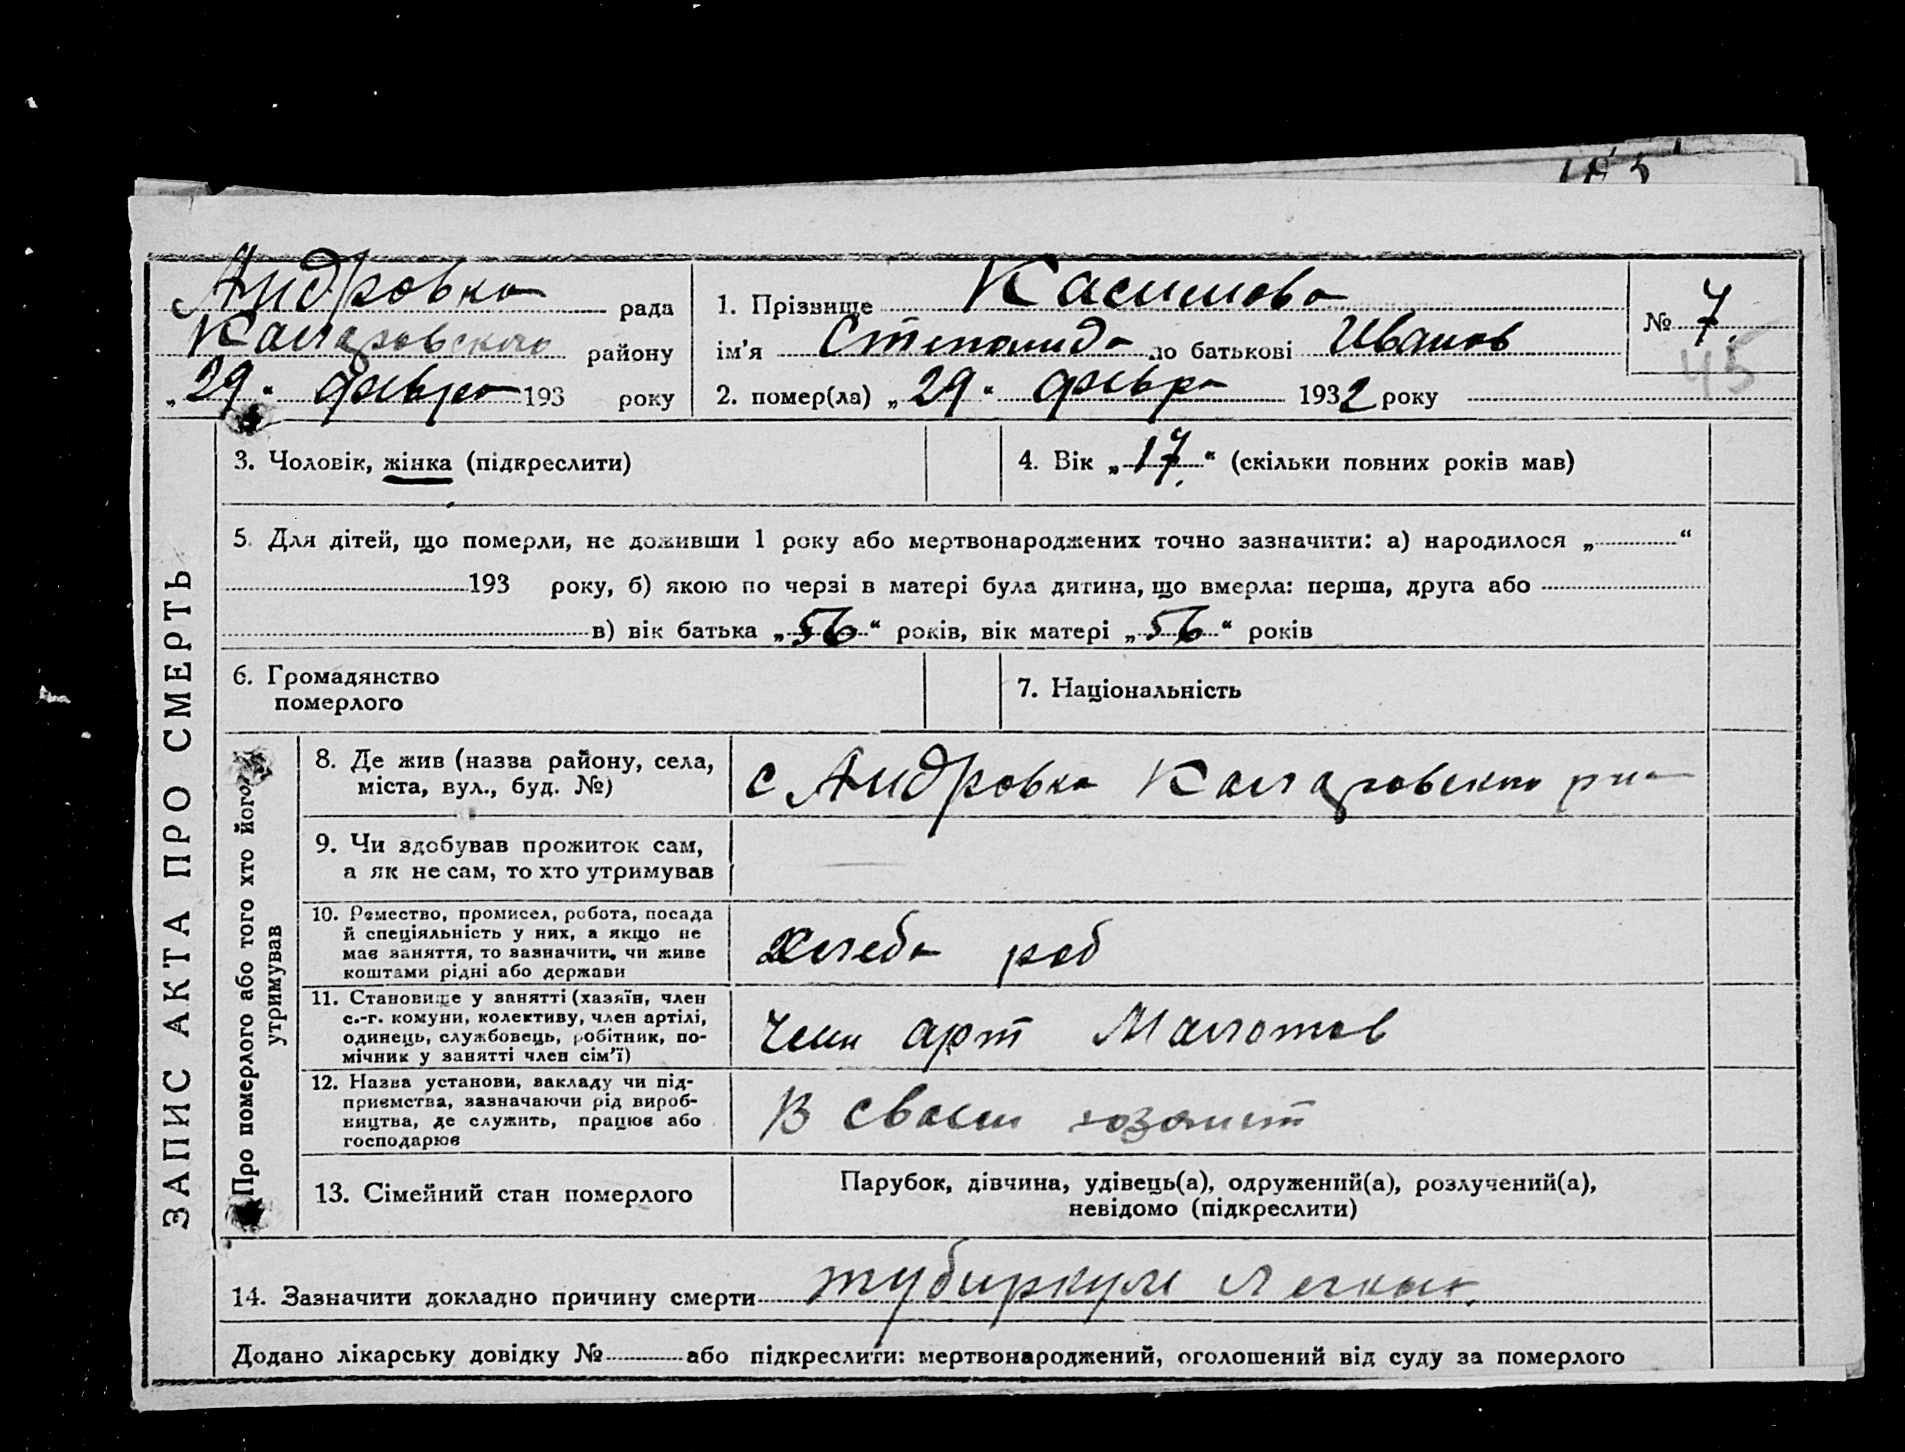 с Андровка рада
Коларовского району
„29“ февра 193 року
1. Прізвище Касимова
ім’я Степонида по батькові Иванов
2. помер(ла) „29“ февра 1932 року
№ 7.
45
ЗАПИС АКТА ПРО СМЕРТЬ
3. Чоловік, жінка (підкреслити)
4. Вік „17“ (скільки повних років мав)
5. Для дітей, що померли, не доживши 1 року або мертвонароджених точно зазначити: а) народилося „ “
193 року, б) якою по черзі в матері була дитина, що вмерла: перша, друга або
в) вік батька „56“ років, вік матері „56“ років
6. Громадянство
померлого
7. Національність
Про померлого або того хто його
утримував
8. Де жив (назва району, села,
міста, вул., буд. №)
с Андровка Коларовского
9. Чи здобував прожиток сам,
а як не сам, то хто утримував
10. Ремество, промисел, робота, посада
й спеціяльність у них, а якщо не
має заняття, то зазначити, чи живе
коштами рідні або держави
хлеба роб
11. Становище у занятті (хазяїн, член
с.-г. комуни, колективу, член артілі,
одинець, службовець, робітник, по-
мічник у занятті член сім’ї)
Член арт Малотов
12. Назва установи, закладу чи під-
приємства, зазначаючи рід вироб-
ництва, де служить, працює або
господарює
В своем хозяист
13. Сімейний стан померлого
Парубок, дівчина, удівець(а), одружений(а), розлучений(а),
невідомо (підкреслити)
14. Зазначити докладно причину смерти тубиркуля легких
Додано лікарську довідку № або підкреслити: мертвонароджений, оголошений від суду за померлого